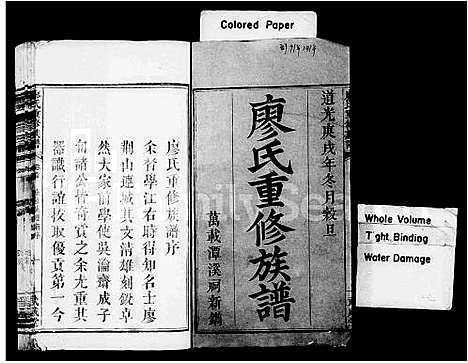 Colored Paper
道光庚戌年冬月穀旦
廖氏重修族譜
萬載潭溪祠新鐫
廖氏重修族譜序
余督學江右時得知名士廖
荆山連城其文清雄刻銳卓
然大家前學使吳論齋成子
旬諸公皆奇賞之余尤重其
器識行誼拔取優貢第一今
Whole Volume
Tight Binding
Water Damage